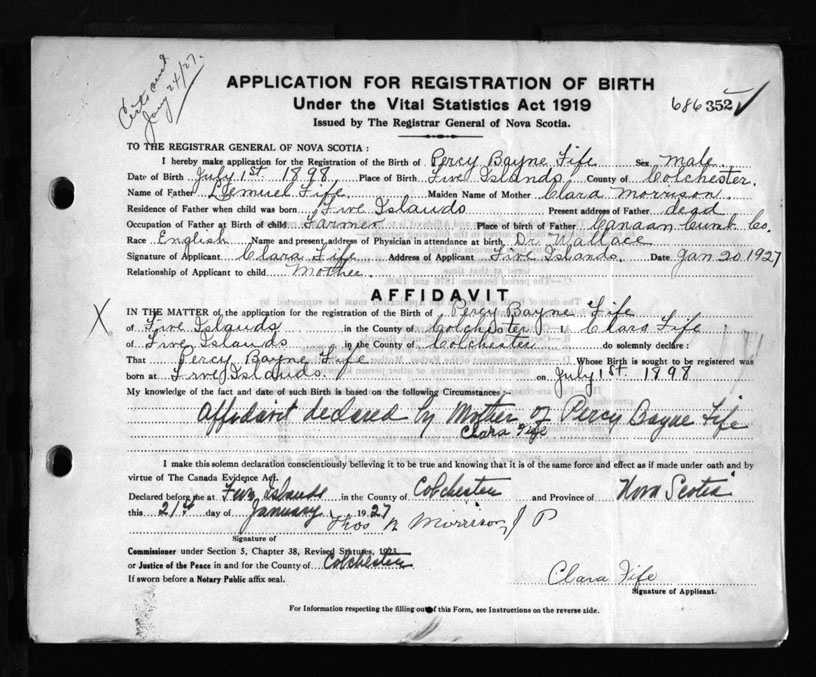 Certs sent
Jany 24/27.
APPLICATION FOR REGISTRATION OF BIRTH
Under the Vital Statistics Act 1919
686352
Issued by The Registrar General of Nova Scotia.
TO THE REGISTRAR GENERAL OF NOVA SCOTIA :
I hereby make application for the Registration of the Birth of Percy Bayne Fife Sex male
Date of Birth July 1st 1898 Place of Birth Five Islands County of Colchester.
Name of Father Lemuel Fife Maiden Name of Mother Clara Morrison
Residence of Father when child was born Five Islands Present address of Father dead
Occupation of Father at Birth of child Farmer Place of birth of Father Canaan Cumb Co.
Race English Name and present address of Physician in attendance at birth Dr. Wallace
Signature of Applicant Clara Fife Address of Applicant Five Islands. Date Jan 20 1927
Relationship of Applicant to child Mother
AFFIDAVIT
X
IN THE MATTER of the application for the registration of the Birth of Percy Bayne Fife
of Five Islands in the County of Colchester I Clara Fife
of Five Islands in the County of Colchester do solemnly declare :
That Percy Bayne Fife Whose Birth is sought to be registered was
born at Five Islands on July 1st 1898
My knowledge of the fact and date of such Birth is based on the following Circumstances :-
Affidavit declared by Mother of Percy Bayne Fife
Clara Fife
I make this solemn declaration conscientiously believing it to be true and knowing that it is of the same force and effect as if made under oath and by
virtue of The Canada Evidence Act.
Declared before me at Five Islands in the County of Colchester and Province of Nova Scotia
this 21st day of January 1927
Thos R Morrison J P
Signature of
Commissioner under Section 5, Chapter 38, Revised Statutes, 1923
or Justice of the Peace in and for the County of Colchester
If sworn before a Notary Public affix seal.
Clara Fife
Signature of Applicant.
For Information respecting the filling out of this Form, see Instructions on the reverse side.